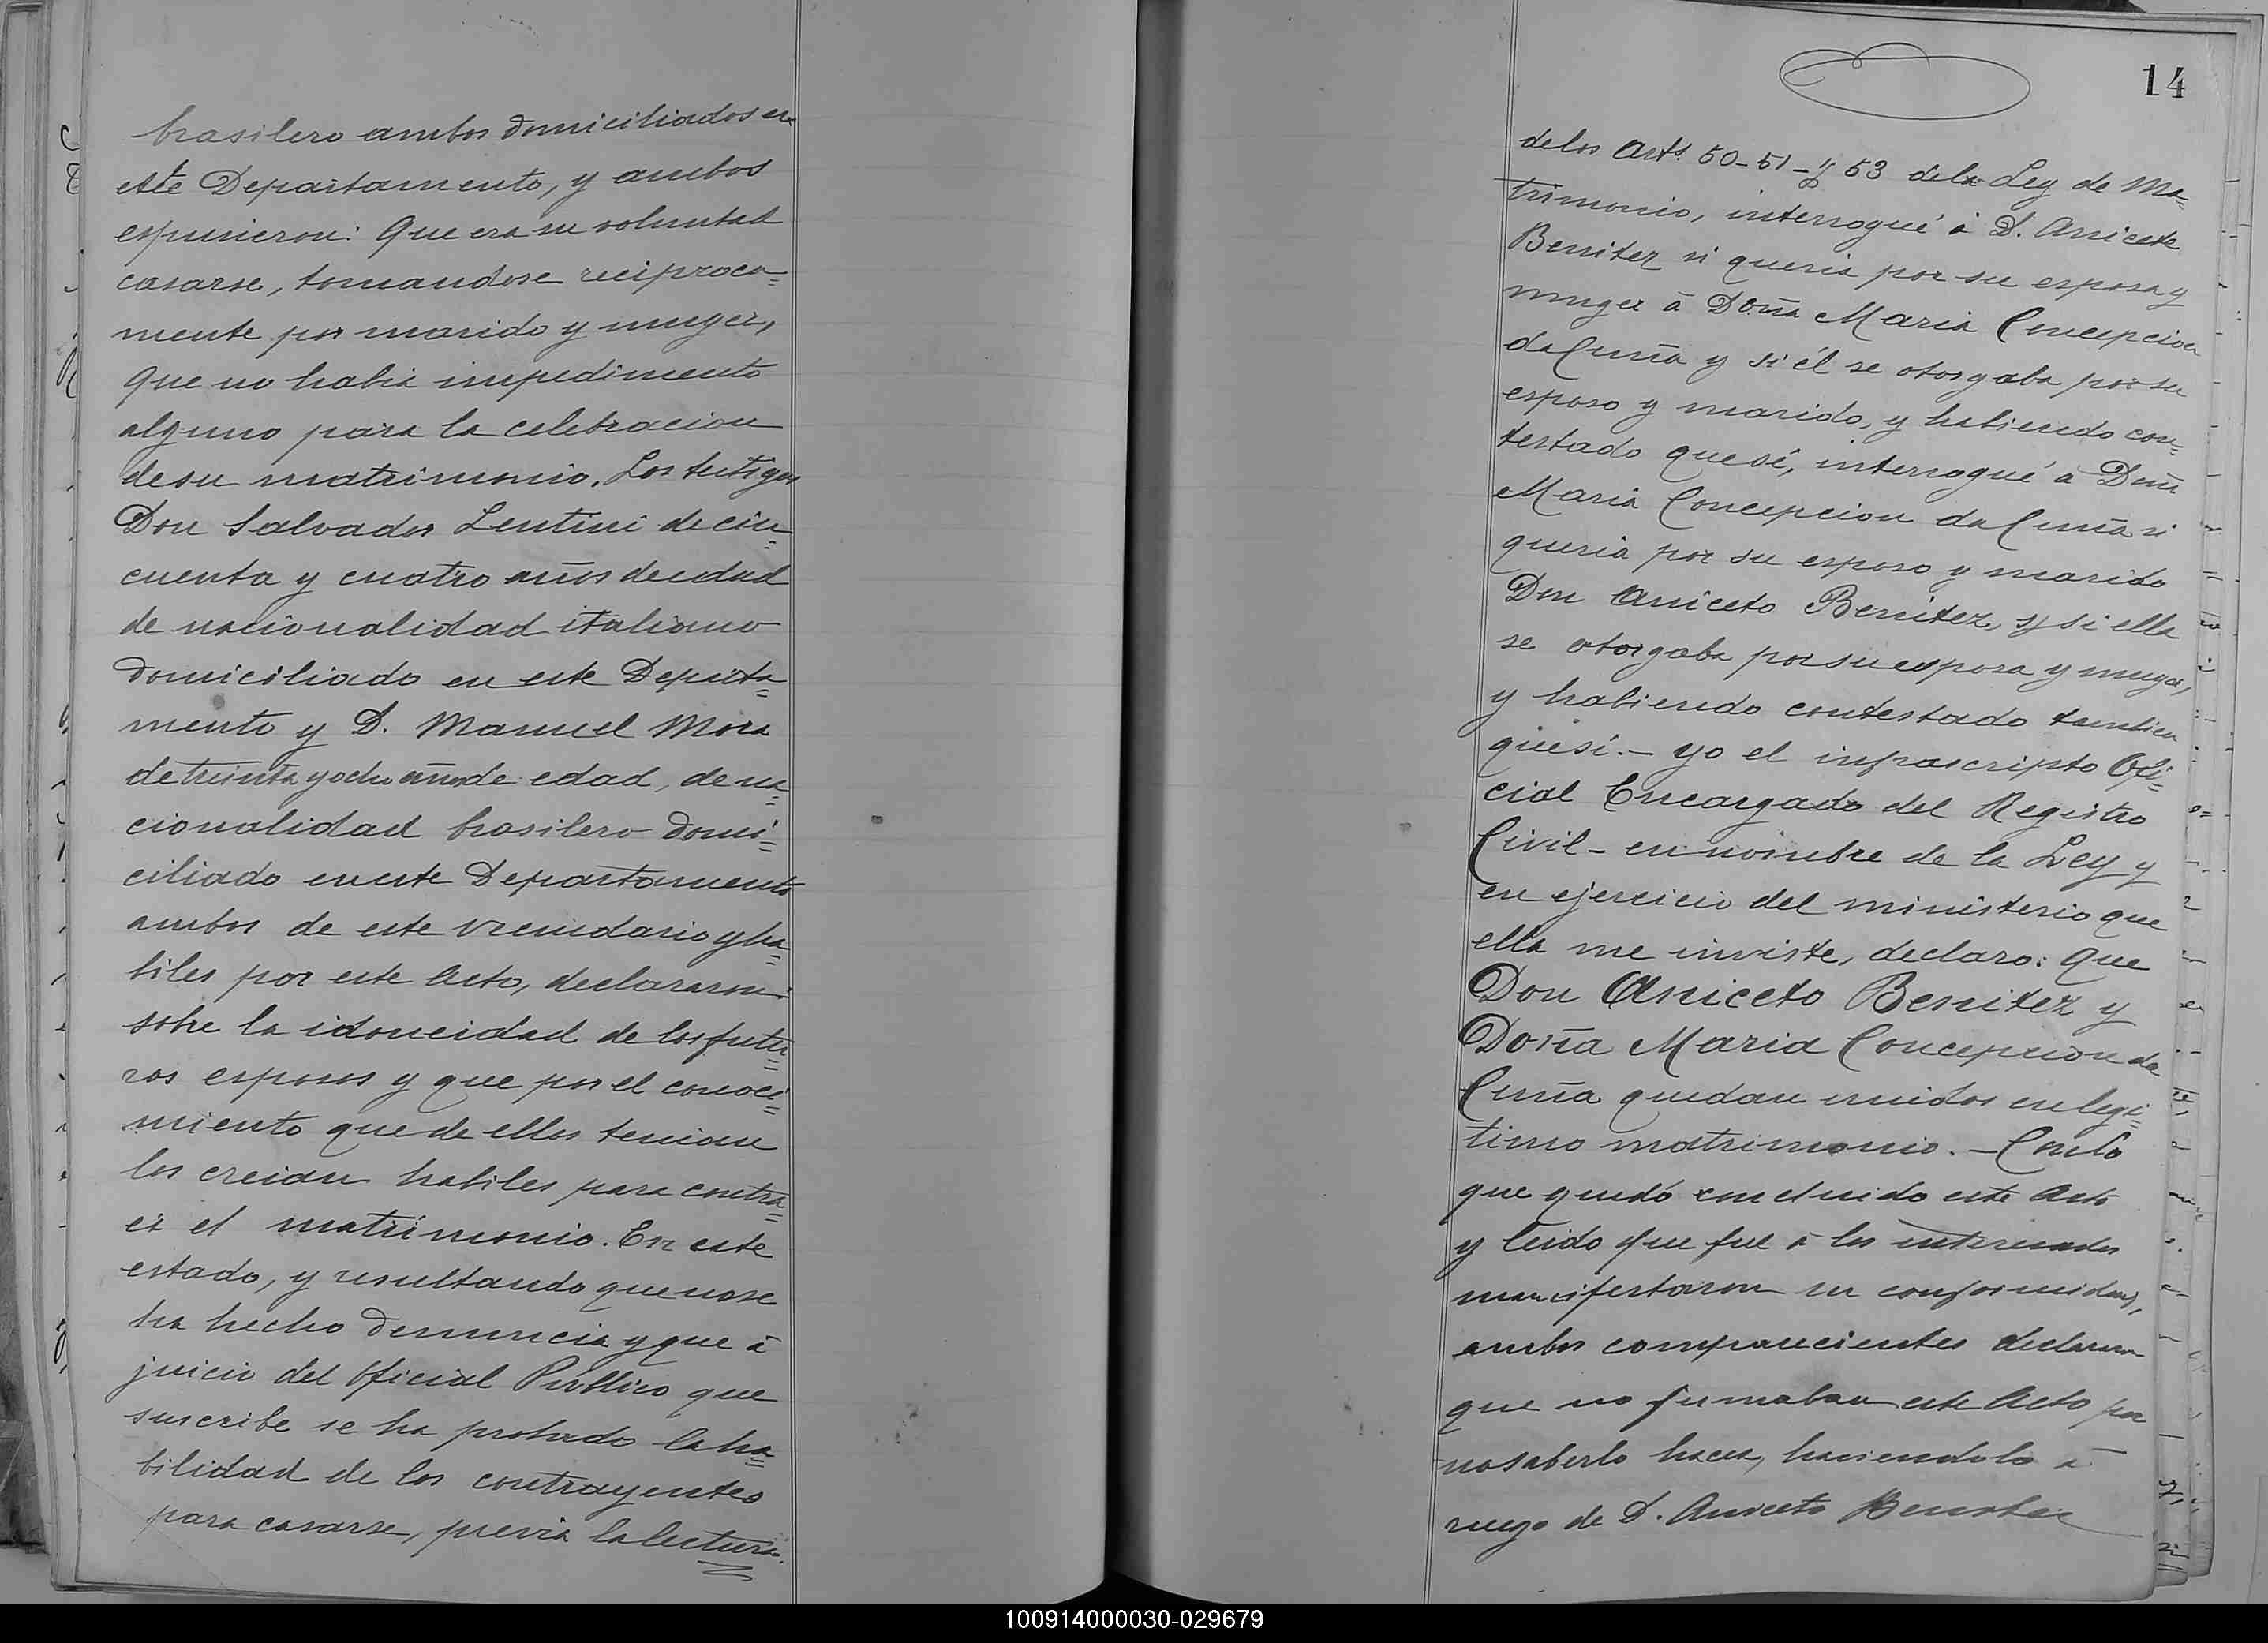 brasilero ambos domiciliados en
este Departamento, y ambos
espusieron: Que era su voluntad
casarse, tomandose reciproca=
mente por marido y muger,
Que no habia impedimento
alguno para la celebracion
de su matrimonio. Los testigos
Don Salvador Lentini de cin=
cuenta y cuatro años de edad
de nacionalidad italiano
domiciliado en este Departa=
mento y D. Manuel Mora
de treinta y ocho años de edad, de na=
cionalidad brasilero domi=
ciliado en este Departamento
ambos de este vecindario y ha=
biles por este acto, declararon:
sobre la idoneidad de los futu=
ros esposos y que por el conoci=
miento que de ellos tenian
los creian habiles para contra=
er el matrimonio. En este
estado, y resultando que no se
ha hecho denuncia y que á
juicio del Oficial Publico que
suscribe se ha probado la ha=
bilidad de los contrayentes
para casarse, previa la lectura
14
de los Arts. 50-51-y 53 de la Ley de Ma=
trimonio, interrogué á D. Aniceto
Benitez si queria por su esposa y
muger á Doña Maria Concepcion
da Cuña y si él se otorgaba por su
esposo y marido, y habiendo con=
testado que sí, interrogué á Doña
Maria Concepcion da Cuña si
queria por su esposo y marido
Don Aniceto Benitez, y si ella
se otorgaba por su esposa y muger,
y habiendo contestado tambien
que sí.- yo el infrascripto Ofi=
cial Encargado del Registro
Civil - en nombre de la Ley y
en ejercicio del ministerio que
ella me inviste, declaro: Que
Don Aniceto Benitez y
Doña Maria Concepcion da
Cuña quedan unidos en legi=
timo matrimonio. - Con lo
que quedó concluido este Acto
y leido que fue á los interesados
manifestaron su conformidad,
ambos comparecientes declararon
que no firmaban este Acto por
no saberlo hacer, haciendolo á
ruego de D. Aniceto Benitez
100914000030-029679